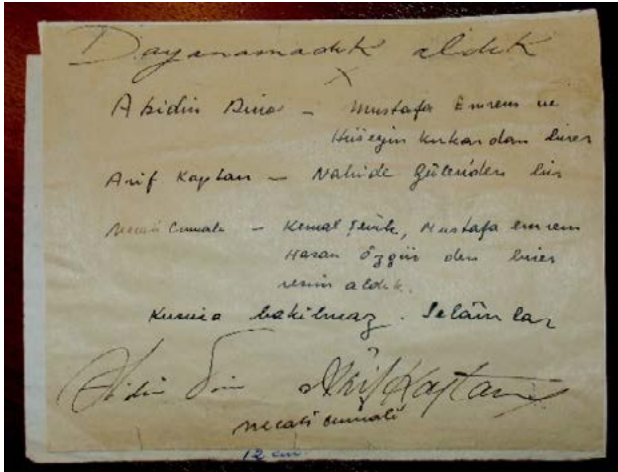 Dayanamadık aldık
Abidin Dino – Mustafa Emrem ve
Hüseyin kukardan birer
Arif Kaptan – Nahide Gülenden bir
Necati Cumalı – Kemal , Mustafa emrem
Hasan Özgür den birer
resim aldık.
Kusura bakılmaz. Selâmlar
Abidin Dino Arif Kaptan
necati cumalı
12 cm